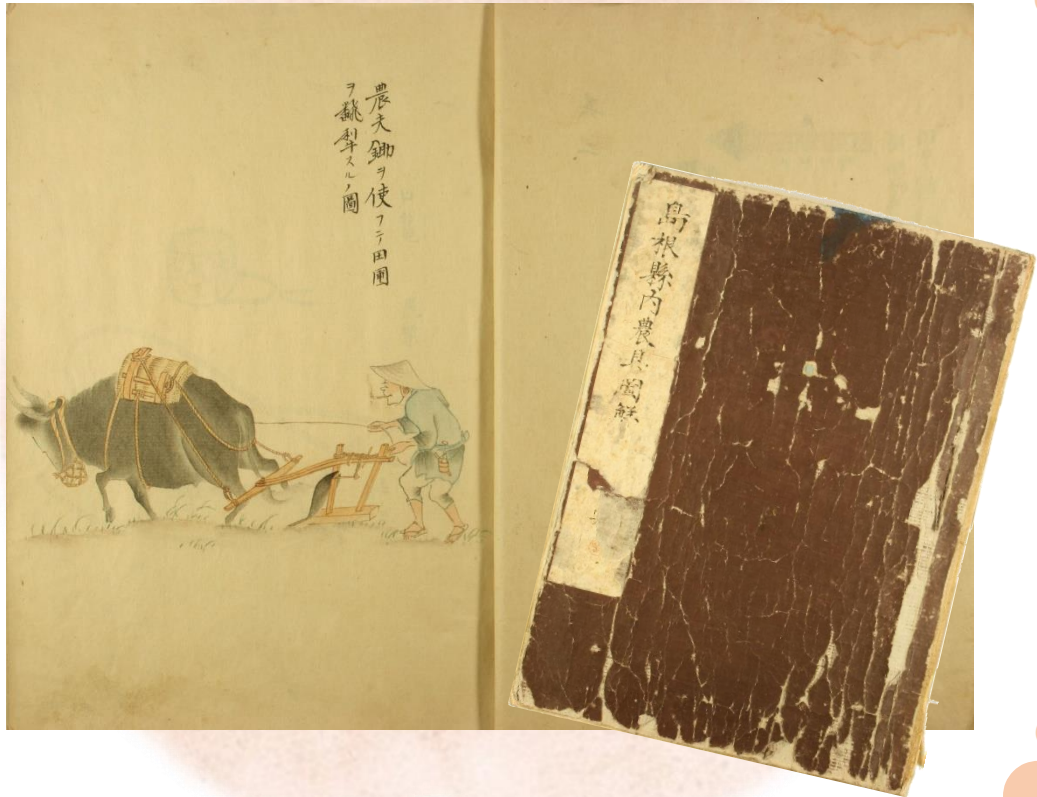 農夫鋤ヲ使フテ田圃
ヲ犂スルノ圖
島根縣内農具圖解